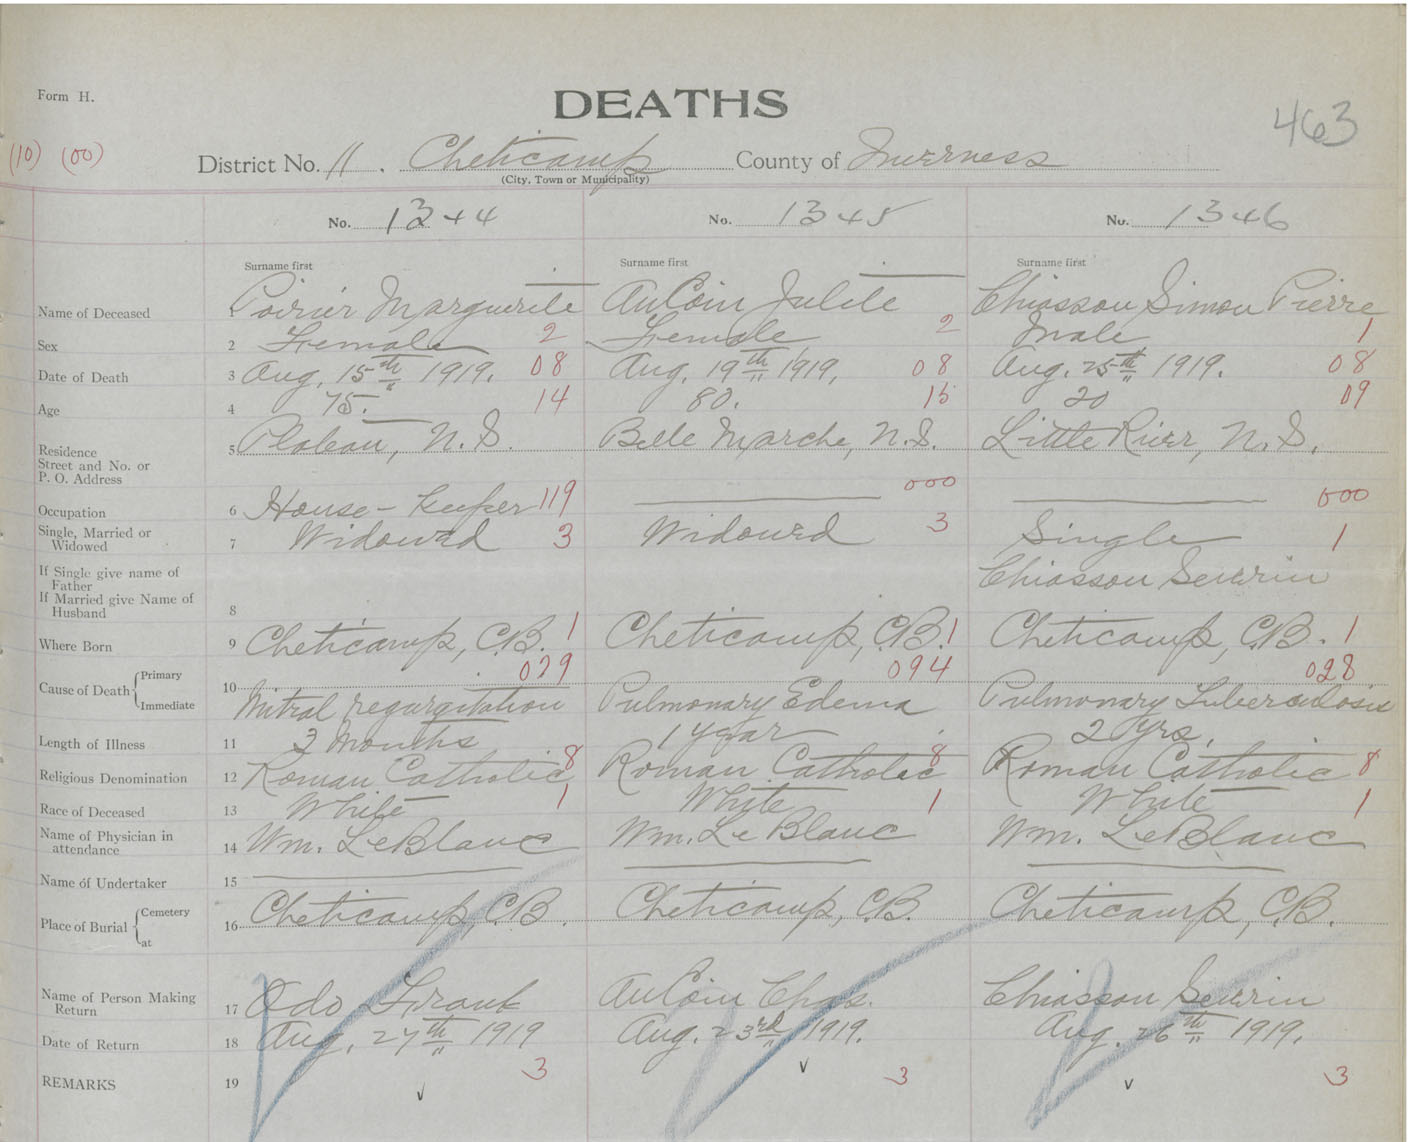 Form H.
DEATHS
463
(10) (00)
District No. 11. Cheticamp County of Inverness
(City, Town or Municipality)
No. 1344 No. 1345 No. 1346
Surname first Surname first Surname first
Name of Deceased 1 Poirier Marguerite AuCoin Julite Chiasson Simon Pierre
Sex 2 Female 2 Female 2 Male 1
Date of Death 3 Aug. 15th 1919. 08 Aug. 19th 1919. 08 Aug. 25th 1919. 08
Age 4 75. 14 80. 15 20 09
Residence
Street and No. or
P. O. Address
5 Plateau, N.S. Belle Marche, N.S. Little River, N.S.
Occupation 6 House-keeper 119 000 000
Single, Married or
Widowed 7 Widowed 3 Widowed 3 Single 1
If Single give name of
Father
If Married give Name of
Husband
8 Chiasson Severin
Where Born 9 Cheticamp, C.B. 1 Cheticamp, C.B. 1 Cheticamp, C.B. 1
Cause of Death Primary 079 094 028
Immediate 10 Mitral regurgitation Pulmonary Edema Pulmonary Tuberculosis
Length of Illness 11 3 months 1 year 2 yrs.
Religious Denomination 12 Roman Catholic 8 Roman Catholic 8 Roman Catholic 8
Race of Deceased 13 White 1 White 1 White 1
Name of Physician in
attendance 14 Wm. LeBlanc Wm. LeBlanc Wm. LeBlanc
Name of Undertaker 15
Place of Burial Cemetery
at
16 Cheticamp, C.B. Cheticamp, C.B. Cheticamp, C.B.
Name of Person Making
Return 17 Odo Frank AuCoin Chas. Chiasson Severin
Date of Return 18 Aug. 27th 1919 Aug. 23rd 1919. Aug. 26th 1919.
REMARKS 19 3 3 3